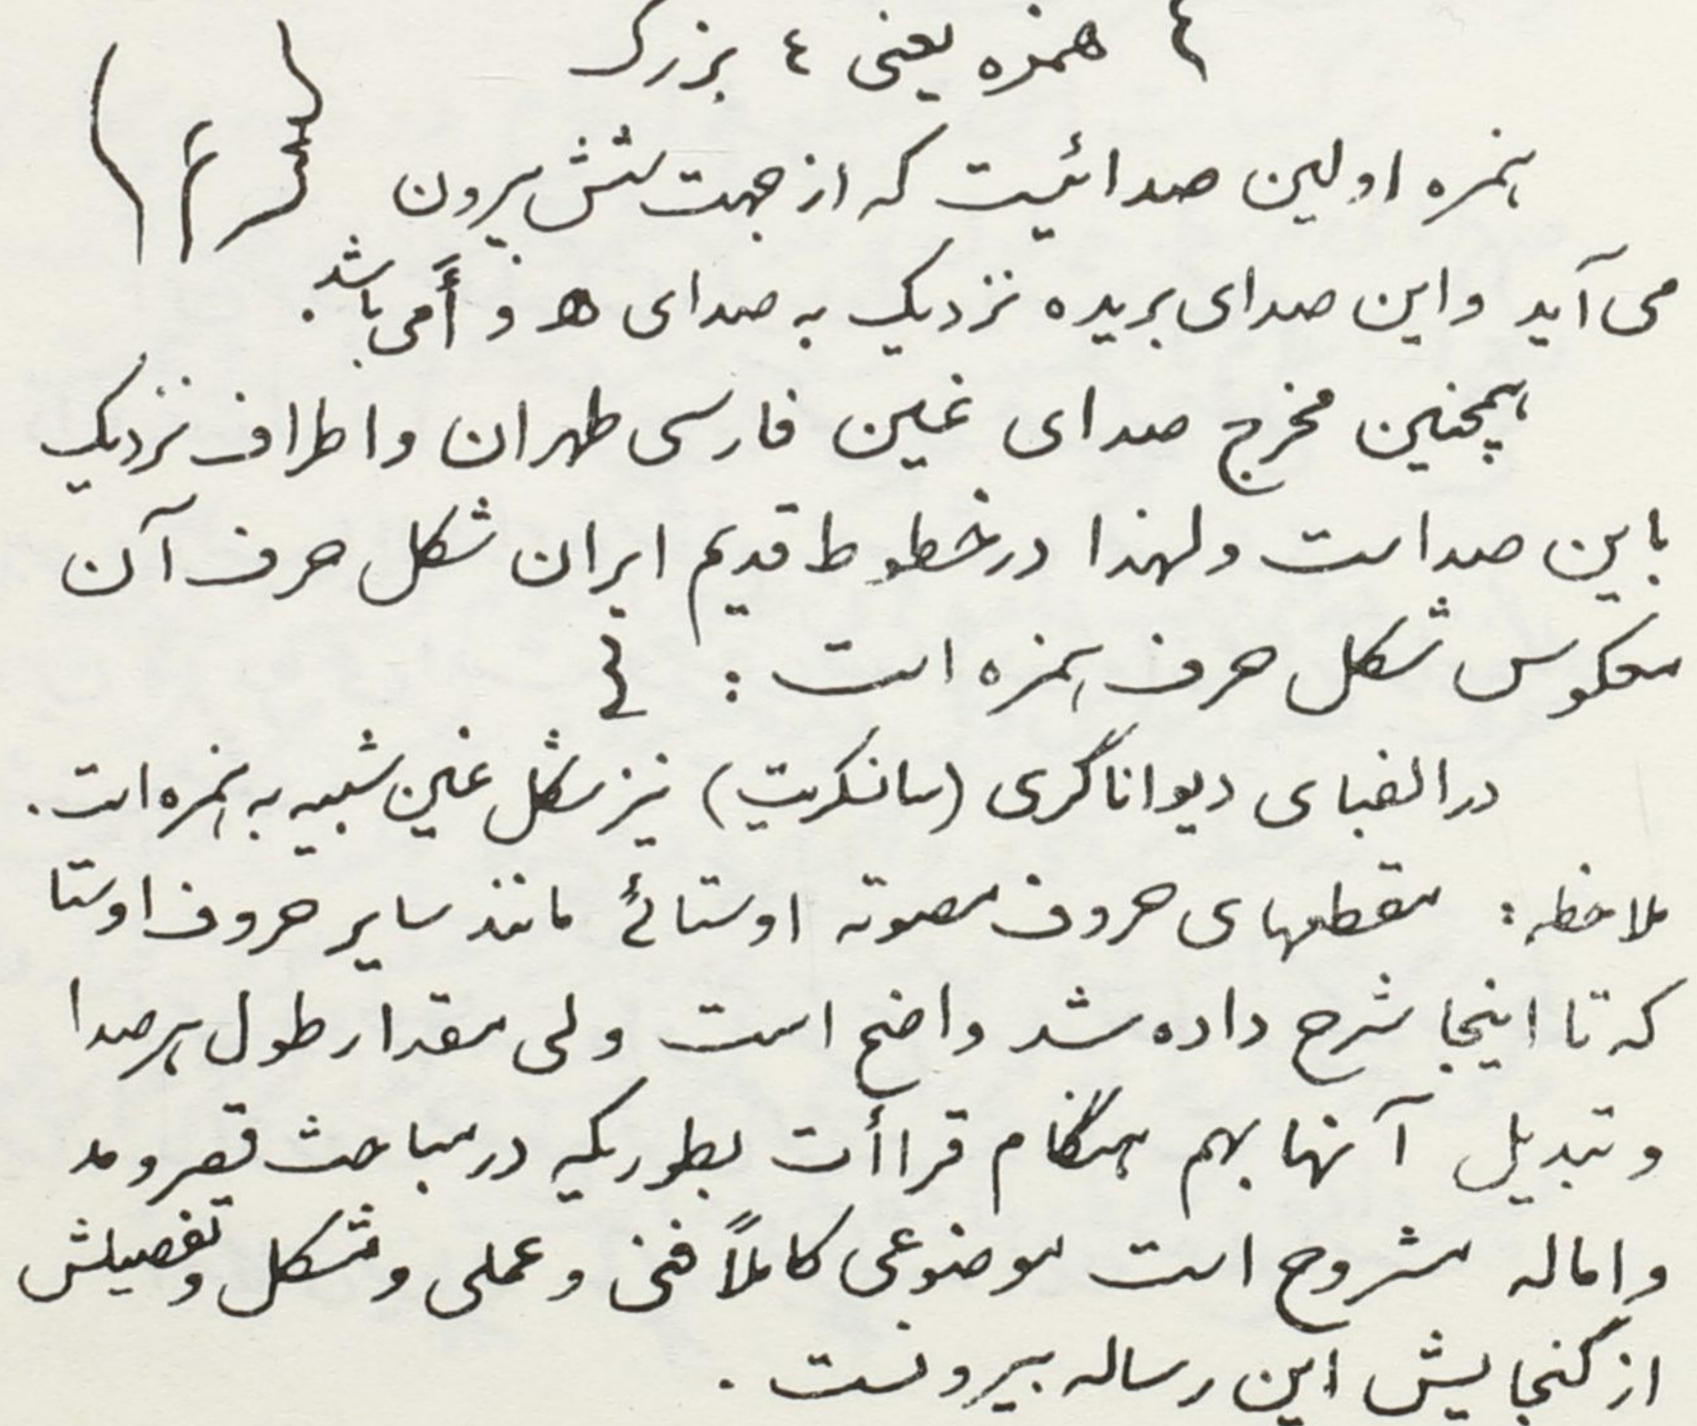 همزه یعنی ء بزرگ
همزه اولین صدائیست که از جهت تنش بیرون
می‌آید و این صدای بریده نزدیک به صدای ه و أَ می باشد.
همچنین مخرج صدای غین فارسی طهران و اطراف نزدیک
باین صداست ولهذا در خطوط قدیم ایران شکل حرف آن
معکوس شکل حرف همزه است :
در الفبای دیواناگری (سانسکریت) نیز شکل غین شبیه به همزه است.
ملاحظه : مقطعهای حروف مصوته اوستائی مانند سایر حروف اوستا
که تا اینجا شرح داده شد واضح است ولی مقدار طول هر صدا
و تبدیل آنها بهم هنگام قراأت بطوریکه در مباحث قصر و مد
و اماله مشروح است موضوعی کاملاً فنی و عملی و مشکل و تفصیلش
از گنجایش این رساله بیرونست .